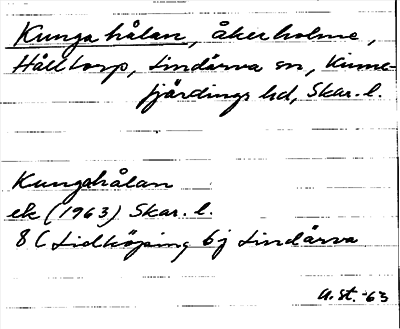 Kungahålan, åkerholme,
Hålltorp, Lindärva sn, Kinne-
fjärdings hd, Skar. l.
Kungahålan
ek (1963) Skar. l.
8 C Lidköping 6j Lindärva
A. St. -63